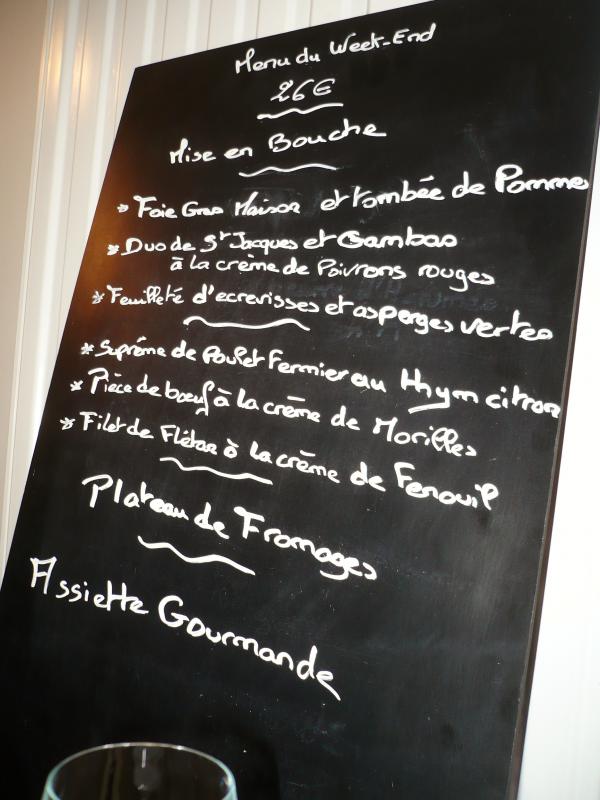 Menu du Week-End
26€
Mise en Bouche
* Foie Gras Maison et tombée de Pommes
* Duo de St Jacques et Gambas
à la crème de Poivrons rouges
* Feuilleté d'ecrevisses et asperges vertes
* Suprême de Poulet Fermier au thym citron
* Pièce de bœuf à la crème de Morilles
* Filet de Flétan à la crème de Fenouil
Plateau de Fromages
Assiette Gourmande